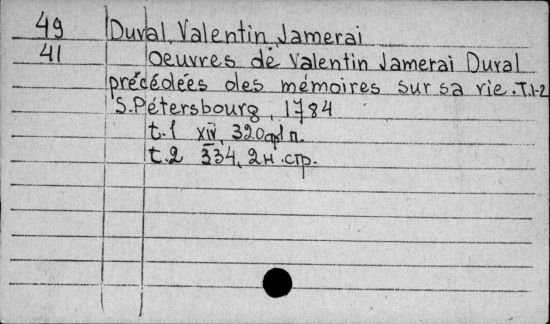 49 Duval, Valentin Jamerai
41 Oeuvres de Valentin Jamerai Duval
précédées des mémoires sur sa vie. T.1-2
S.Pétersbourg, 1784
t.1 XIV, 320 п.
t.2 334, 2н.стр.